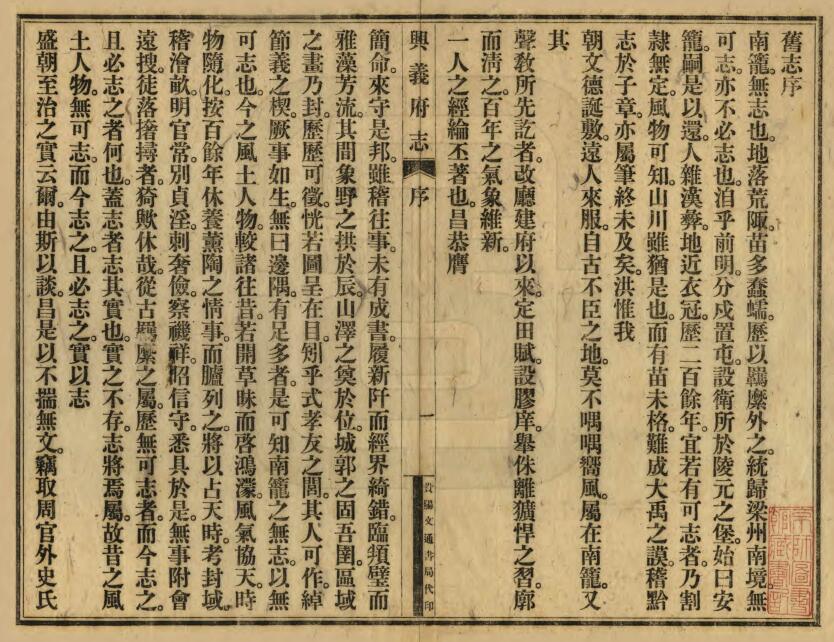 舊志序
南籠無志也。地落荒陬。苗多蠢蠕。歷以羈縻外之。統歸梁州南境。無
可志。亦不必志也。洎乎前明。分戍置屯。設衛所於陵元之堡。始曰安
籠。嗣是以還。人雜漢彝。地近衣冠。歷二百餘年。宜若有可志者。乃割
隸無定。風物可知。山川雖猶是也。而有苗未格。難成大禹之謨。稽黔
志於子章。亦屬筆終未及矣。洪惟我
朝文德誕敷。遠人來服。自古不臣之地。莫不喁喁嚮風。屬在南籠。又
其
聲敎所先訖者。改廳建府以來。定田賦。設膠庠。舉侏離獷悍之習。廓
而清之。百年之氣象維新。
一人之經綸丕著也。昌恭膺
興義府志 序 一 貴陽文通書局代印
簡命。來守是邦。雖稽往事。未有成書。履新阡而經界綺錯。臨頖璧而
雅藻芳流。其間象野之拱於辰。山澤之奠於位。城郭之固吾圉。區域
之畫乃封。歷歷可徵。恍若圖呈在目。矧乎式孝友之閭。其人可作。綽
節義之楔。厥事如生。無曰邊隅。有足多者。是可知南籠之無志。以無
可志也。今之風土人物。較諸往昔。若開草昧而啓鴻濛。風氣協天。時
物隨化。按百餘年休養薰陶之情事。而臚列之。將以占天時。考封域。
稽澮畝。明官常。別貞淫。刺奢儉。察禨祥。昭信守。悉具於是。無事附會
遠搜。徒落撦撏者。猗歟休哉。從古羈縻之屬。歷無可志者。而今志之。
且必志之者何也。蓋志者志其實也。實之不存。志將焉屬。故昔之風
土人物。無可志。而今志之。且必志之。實以志
盛朝至治之實云爾。由斯以談。昌是以不揣無文。竊取周官外史氏